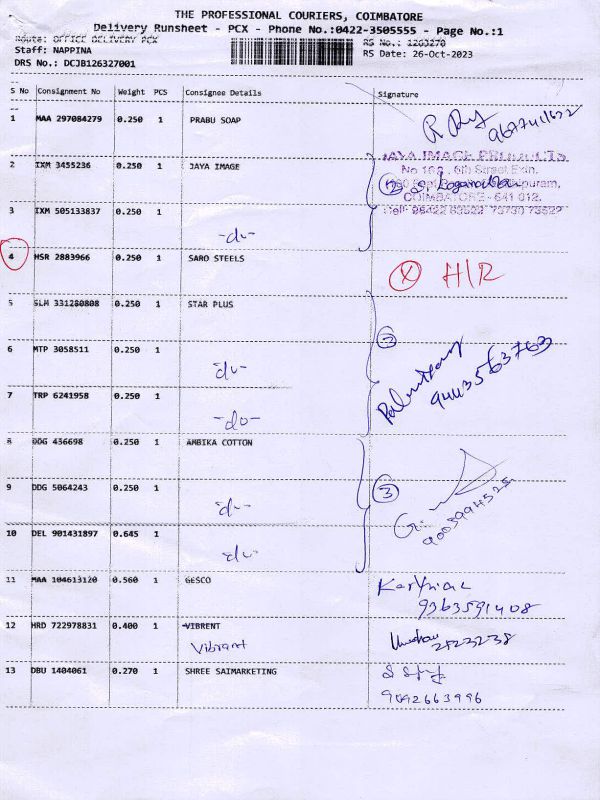 THE PROFESSIONAL COURIERS, COIMBATORE
Delivery Runsheet - PCX - Phone No.:0422-3505555 - Page No.:1
Route: OFFICE DELIVERY PCX
RS No.: 1263270
Staff: NAPPINA
RS Date: 26-Oct-2023
DRS No.: DCJB126327001
S No Consignment No Weight PCS Consignee Details Signature
1 MAA 297084279 0.250 1 PRABU SOAP
2 IXM 3455236 0.250 1 JAYA IMAGE
JAYA IMAGE PRODUCTS
6th Street Extn.
COIMBATORE - 641 012.
3 IXM 505133837 0.250 1
-do-
4 HSR 2883966 0.250 1 SARO STEELS X H/R
5 SLM 331280808 0.250 1 STAR PLUS
6 MTP 3058511 0.250 1
-do-
9443563763
7 TRP 6241958 0.250 1
-do-
8 DDG 436698 0.250 1 AMBIKA COTTON
9 DDG 5064243 0.250 1 3
-do-
9003994525
10 DEL 901431897 0.645 1
-do-
11 MAA 104613120 0.560 1 GESCO
9363591408
12 HRD 722978831 0.400 1 VIBRENT
Vibrant
2523238
13 DBU 1404061 0.270 1 SHREE SAIMARKETING
9092663996